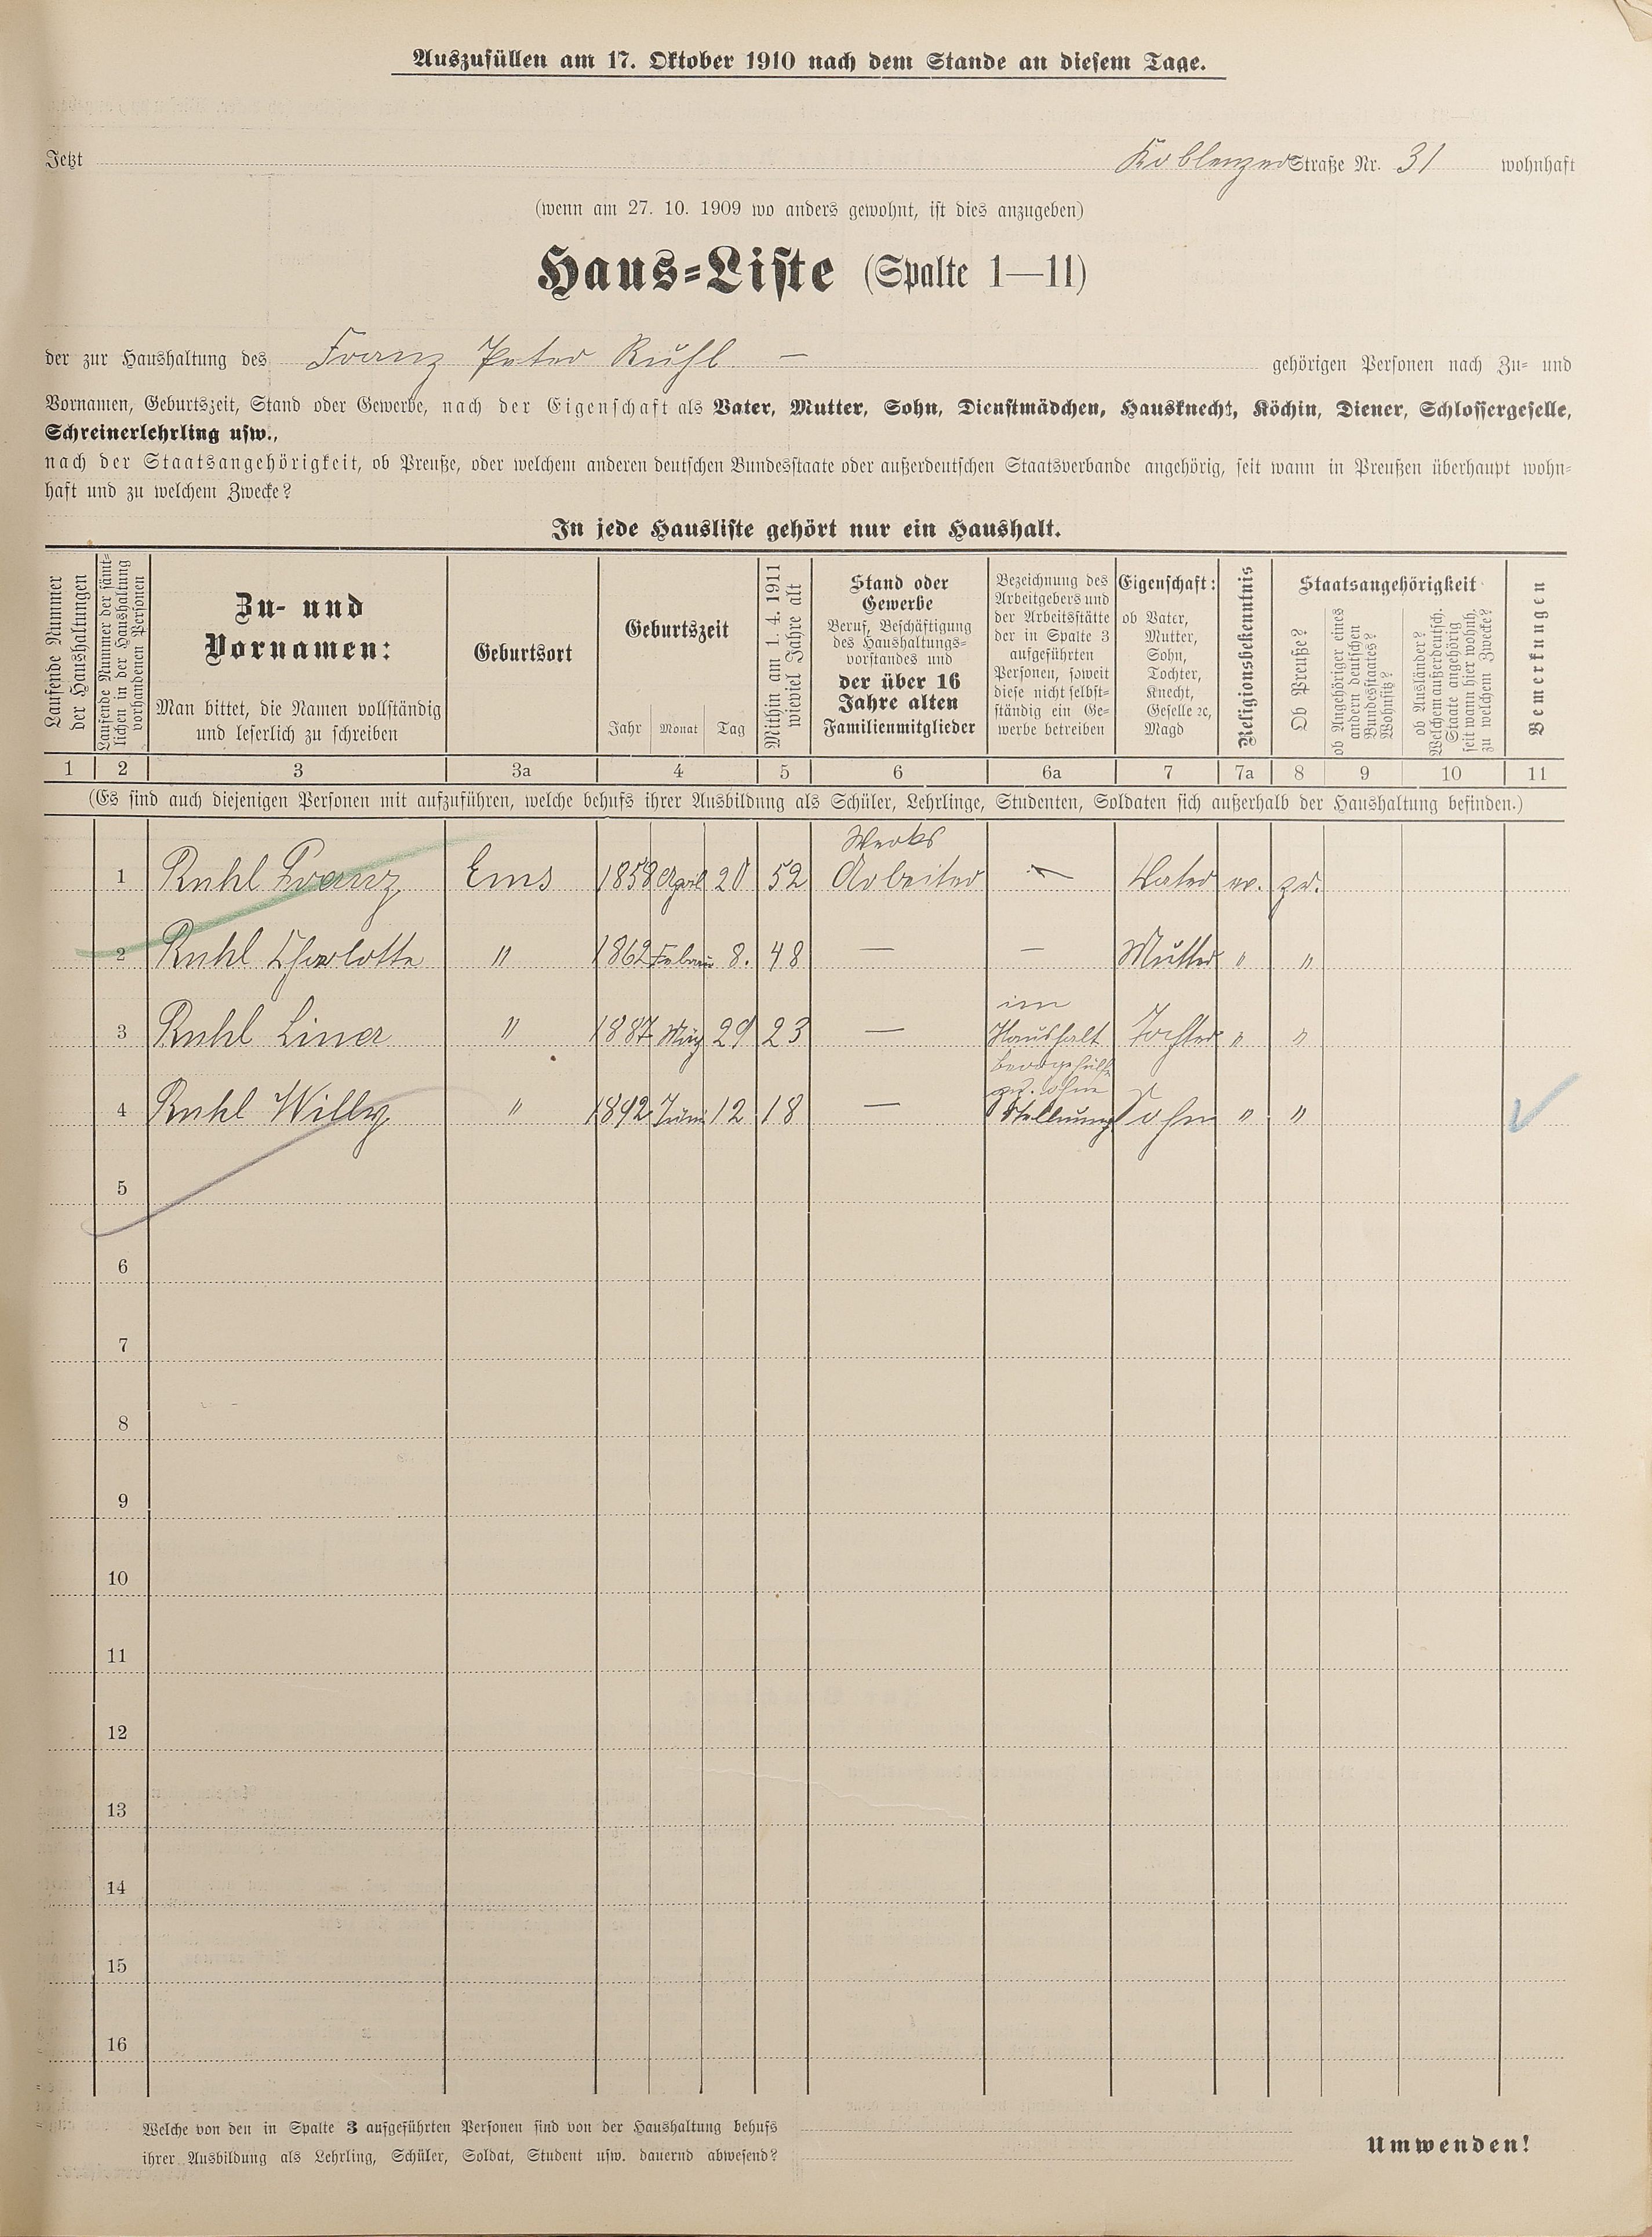 Auszufüllen am 17. Oktober 1910 nach dem Stande an diesem Tage.
Jetzt Koblenzer Straße Nr. 31 wohnhaft
(wenn am 27. 10. 1909 wo anders gewohnt, ist dies anzugeben)
Haus-Liste (Spalte 1—11)
der zur Haushaltung des Franz Peter Ruhl — gehörigen Personen nach Zu- und
Vornamen, Geburtszeit, Stand oder Gewerbe, nach der Eigenschaft als Vater, Mutter, Sohn, Dienstmädchen, Hausknecht, Köchin, Diener, Schlossergeselle,
Schreinerlehrling usw.,
nach der Staatsangehörigkeit, ob Preuße, oder welchem anderen deutschen Bundesstaate oder außerdeutschen Staatsverbande angehörig, seit wann in Preußen überhaupt wohn-
haft und zu welchem Zwecke?
In jede Hausliste gehört nur ein Haushalt.
Laufende Nummer
der Haushaltungen
Laufende Nummer der sämt-
lichen in der Haushaltung
vorhandenen Personen
Zu- und
Vornamen:
Man bittet, die Namen vollständig
und leserlich zu schreiben
Geburtsort
Geburtszeit
Jahr Monat Tag
Mithin am 1. 4. 1911
wieviel Jahre alt
Stand oder
Gewerbe
Beruf, Beschäftigung
des Haushaltungs-
vorstandes und
der über 16
Jahre alten
Familienmitglieder
Bezeichnung des
Arbeitgebers und
der Arbeitsstätte
der in Spalte 3
aufgeführten
Personen, soweit
diese nicht selbst-
ständig ein Ge-
werbe betreiben
Eigenschaft:
ob Vater,
Mutter,
Sohn,
Tochter,
Knecht,
Geselle ꝛc,
Magd
Religionsbekenntnis
Staatsangehörigkeit
Ob Preuße?
ob Angehöriger eines
andern deutschen
Bundesstaates?
Wohnsitz?
ob Ausländer?
Welchem außerdeutsch.
Staate angehörig
seit wann hier wohnh.
zu welchem Zwecke?
Bemerkungen
1 2 3 3a 4 5 6 6a 7 7a 8 9 10 11
(Es sind auch diejenigen Personen mit aufzuführen, welche behufs ihrer Ausbildung als Schüler, Lehrlinge, Studenten, Soldaten sich außerhalb der Haushaltung befinden.)
Werks
1 Ruhl Franz Ems 1858 April 20 52 Arbeiter — Vater ev. pr.
2 Ruhl Charlotte " 1862 Februar 8. 48 — — Mutter " "
im
3 Ruhl Lina " 1887 29 23 — Haushalt Tochter " "
ohne
4 Ruhl Willy " 1892 Juni 12 18 — Stellung Sohn " "
5
6
7
8
9
10
11
12
13
14
15
16
Welche von den in Spalte 3 aufgeführten Personen sind von der Haushaltung behufs
ihrer Ausbildung als Lehrling, Schüler, Soldat, Student usw. dauernd abwesend?
Umwenden!